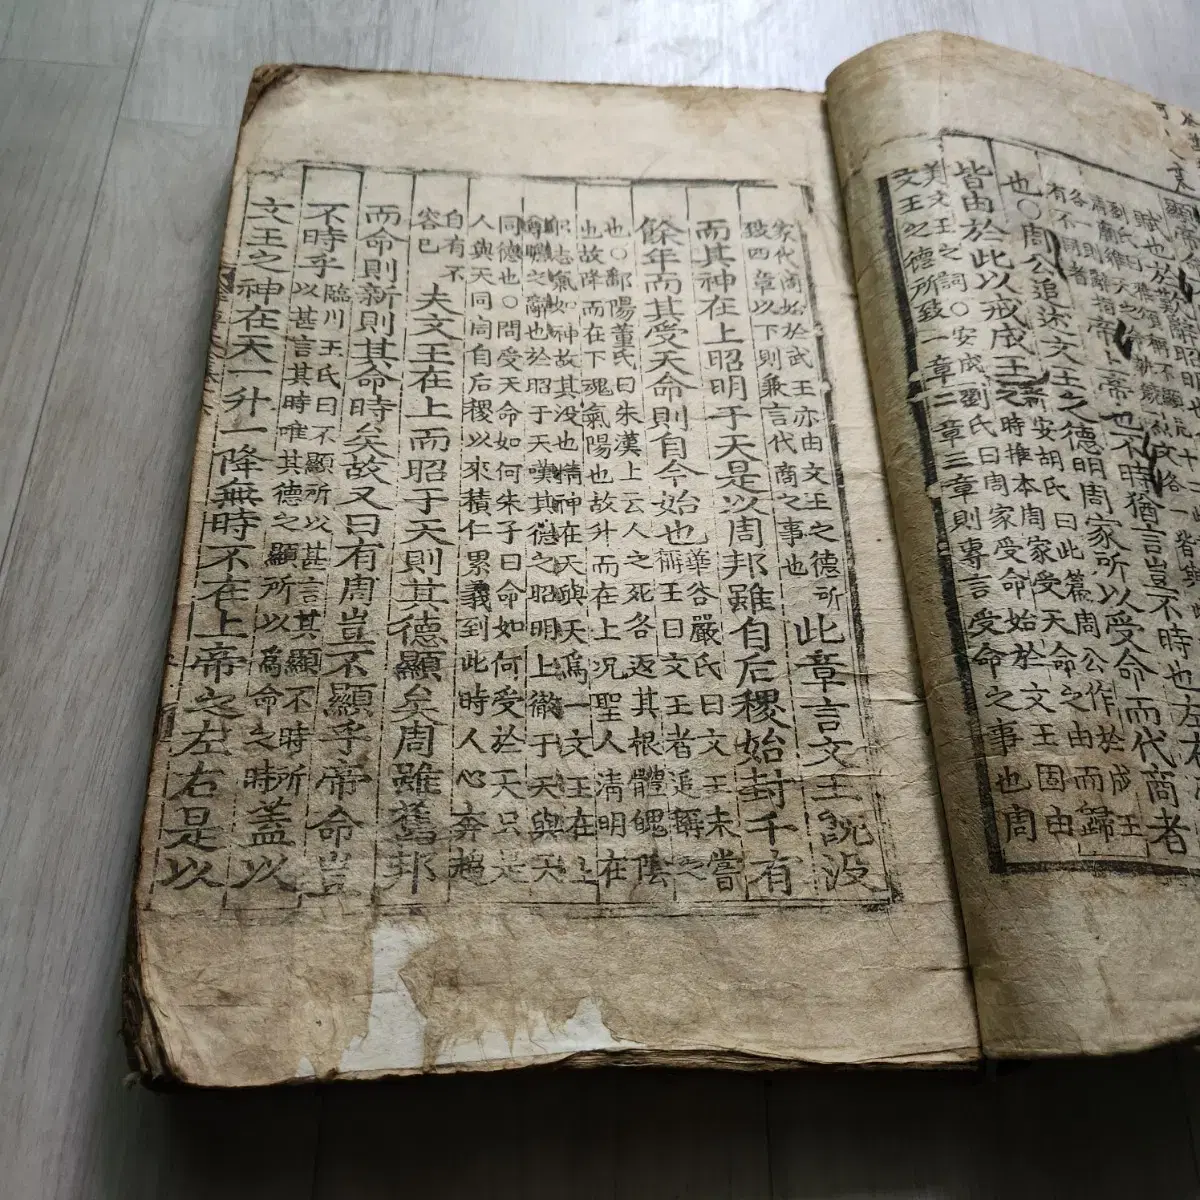 帝上帝也不時猶言豈不時也左右
也○周公追述文王之德明周家所以受命而代商者
皆由於此以戒成王
新安胡氏曰此篇周公作於成王
之時推本周家受天命之由而歸
美文王之詞○安成劉氏曰周家受命始於文王固由
文王之德所致一章二章三章則專言受命之事也周
家代商始於武王亦由文王之德所
致四章以下則兼言代商之事也
此章言文王既没
而其神在上昭明于天是以周邦雖自后稷始封千有
餘年而其受天命則自今始也
華谷嚴氏曰文王未嘗
稱王曰文王者追稱之
也○鄱陽董氏曰朱漢上云人之死各返其根體魄陰
也故降而在下魂氣陽也故升而在上况聖人清明在
躬志氣如神故其没也精神在天與天爲一文王在上
尊瞻之辭也於昭于天嘆其德之昭明上徹于天與天
同德也○問受天命如何朱子曰命如何受於天只是
人與天同同自后稷以來積仁累義到此時人心奔趨
自有不
容已
夫文王在上而昭于天則其德顯矣周雖舊邦
而命則新則其命時矣故又曰有周豈不顯乎帝命豈
不時乎
臨川王氏曰不顯所以甚言其顯不時所
以甚言其時唯其德之顯所以爲命之時
蓋以
文王之神在天一升一降無時不在上帝之左右是以